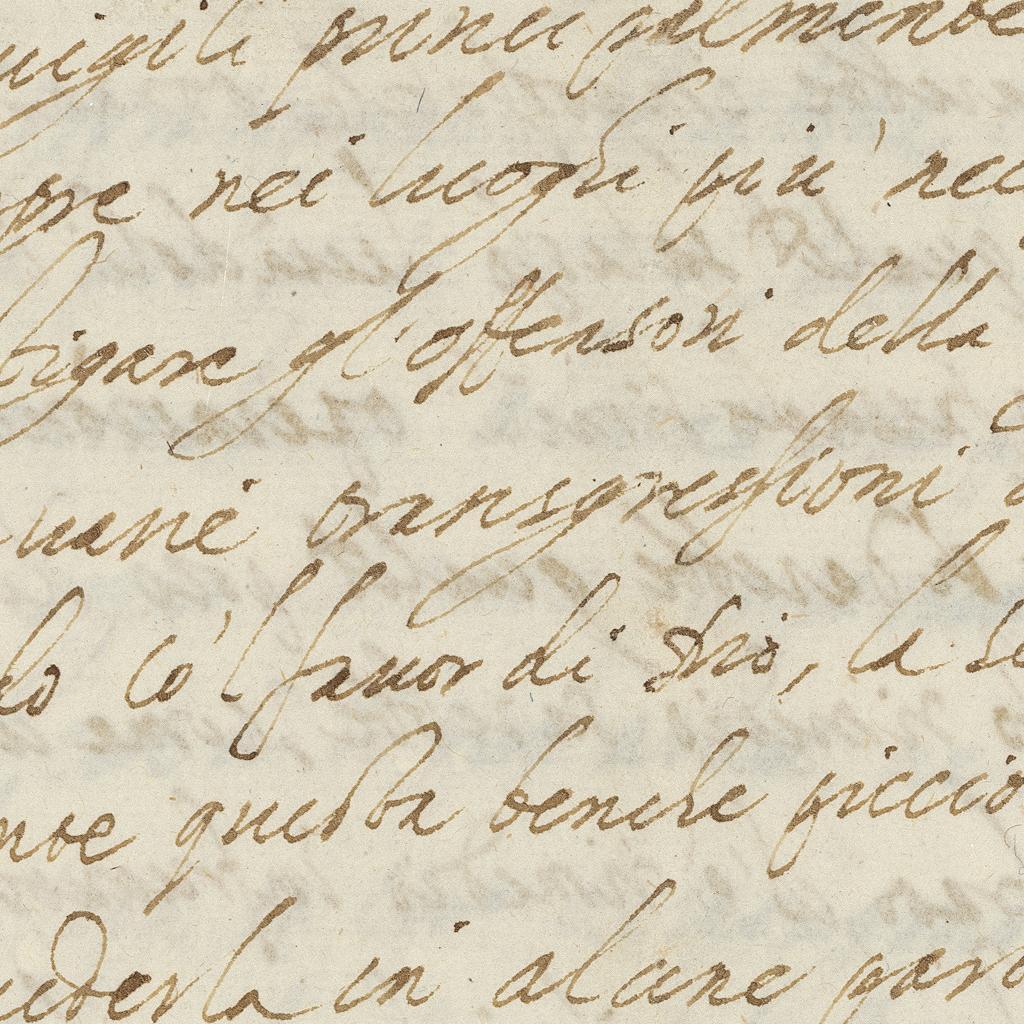 uigili principalmente
pre nei luoghi più rei
tigare gl'offensori della
uarie transgressioni
do co'l fauor di Dio, la se
nte questa benche piccio
uederla in alcune par